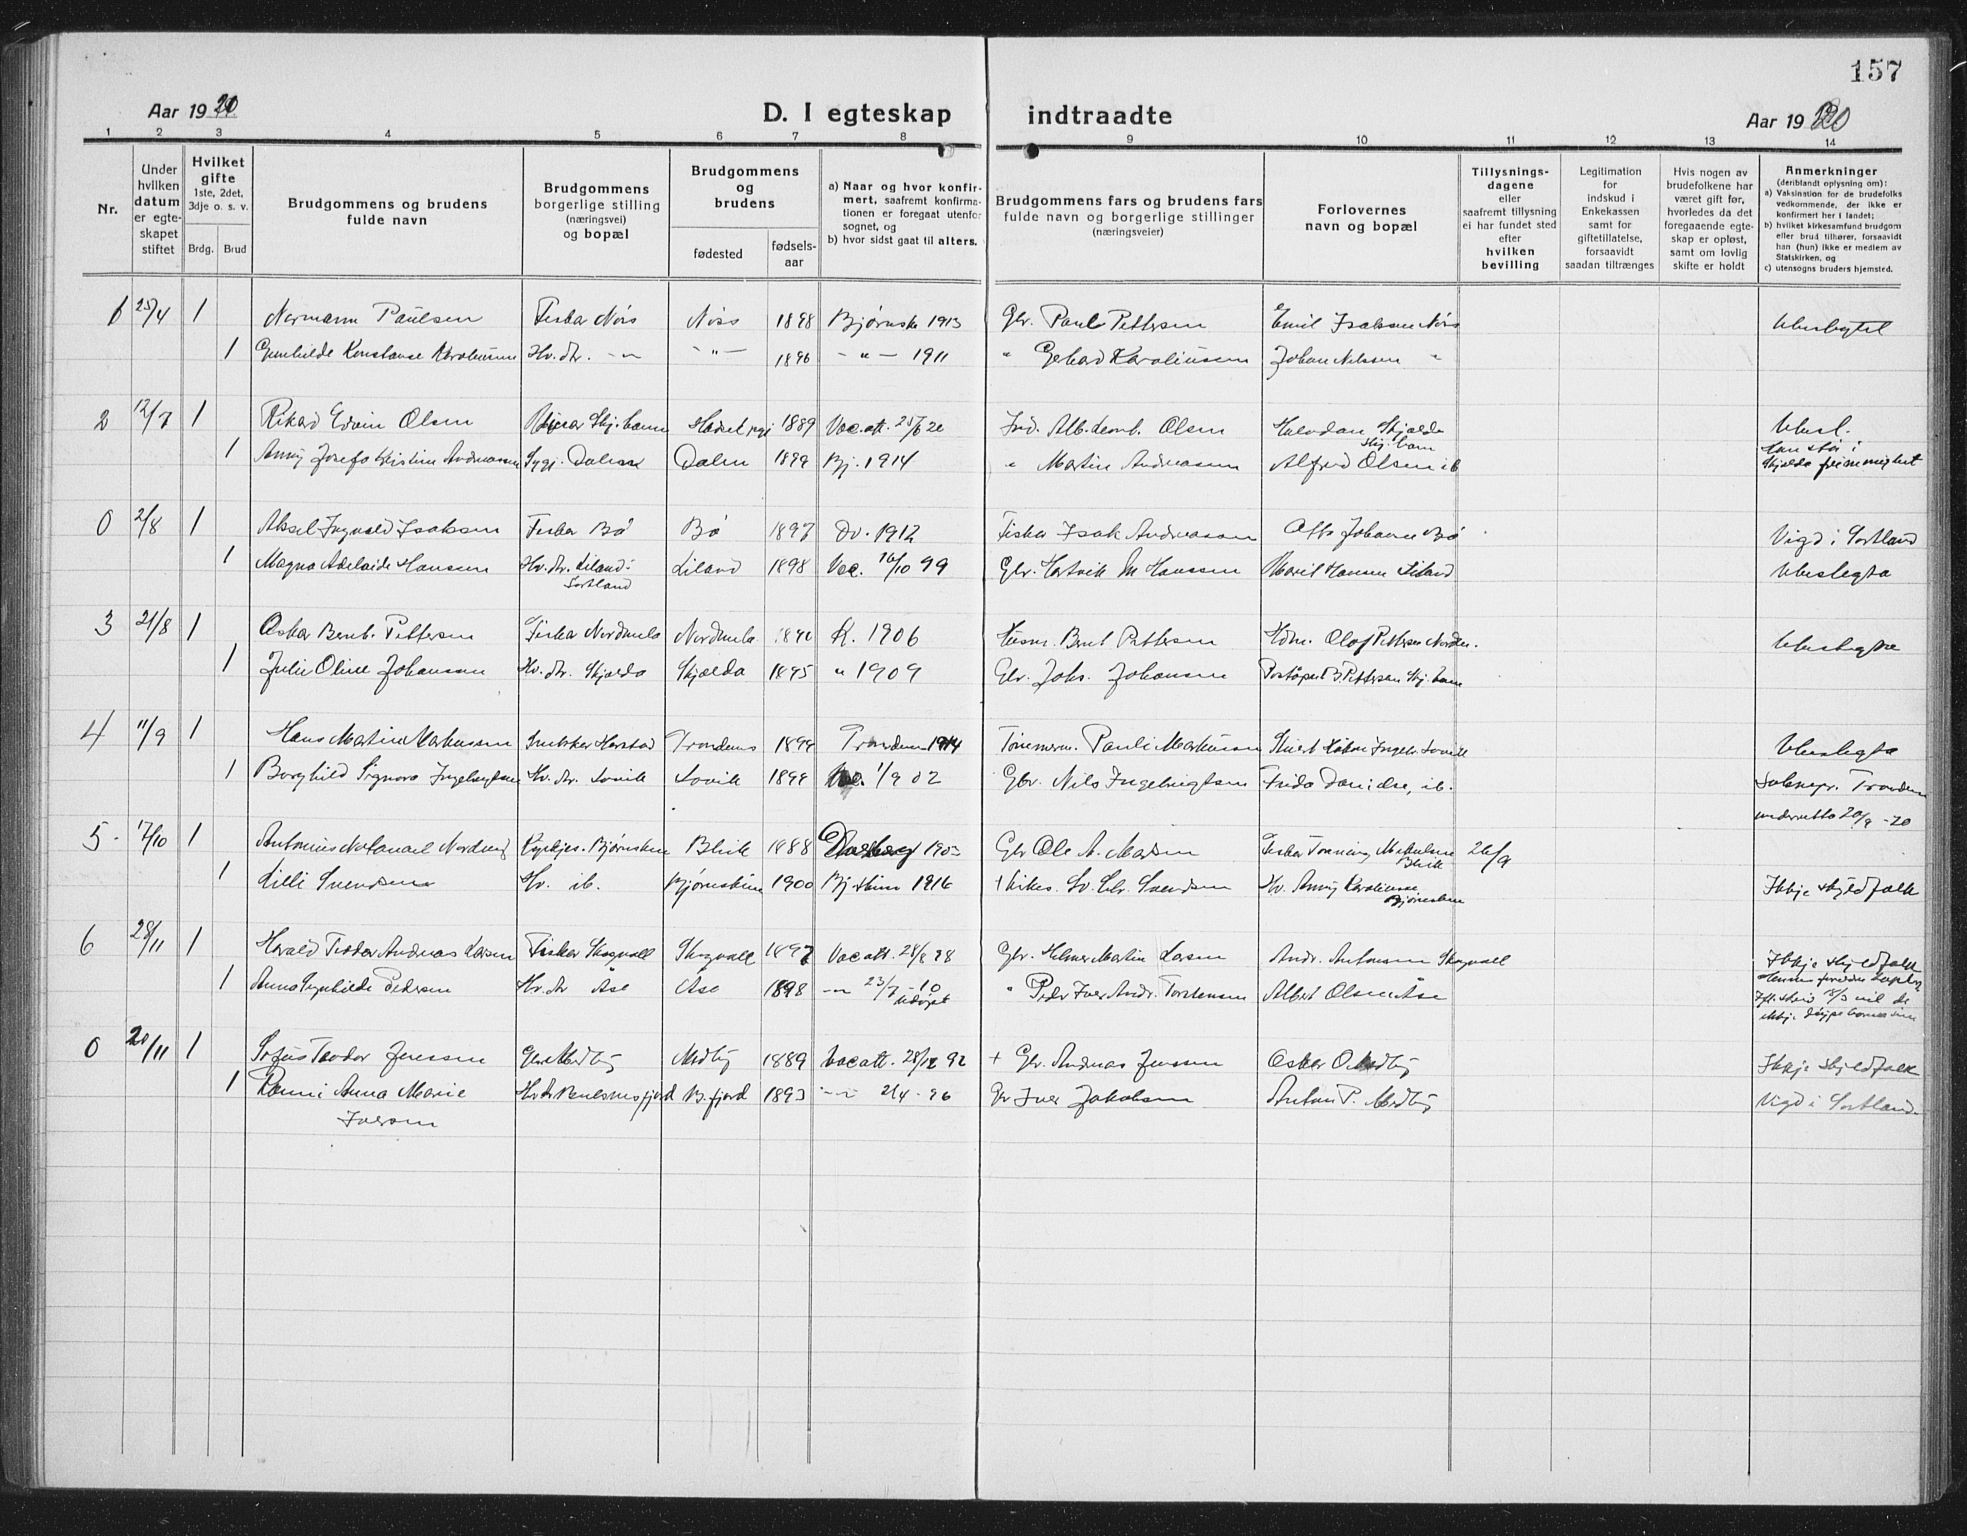 157
Aar 1920
D. I egteskap indtraadte
Aar 1920
1 2 3 4 5 6 7 8 9 10 11 12 13 14
Nr.
Under hvilken datum er egteskapet stiftet
Hvilket gifte 1ste, 2det, 3dje o. s. v.
Brdg. Brud
Brudgommens og brudens fulde navn
Brudgommens borgerlige stilling (næringsvei) og bopæl
Brudgommens og brudens
fødested
fødselsaar
a) Naar og hvor konfirmert, saafremt konfirmationen er foregaat utenfor sognet, og
b) hvor sidst gaat til alters.
Brudgommens fars og brudens fars fulde navn og borgerlige stillinger (næringsveier)
Forlovernes navn og bopæl
Tillysningsdagene eller saafremt tillysning ei har fundet sted efter hvilken bevilling
Legitimation for indskud i Enkekassen samt for giftetillatelse, forsaavidt saadan tiltrænges
Hvis nogen av brudefolkene har været gift før, hvorledes da det foregaaende egteskap er opløst, samt om lovlig skifte er holdt
Anmerkninger (deriblandt oplysning om):
a) Vaksination for de brudefolks vedkommende, der ikke er konfirmert her i landet;
b) hvilket kirkesamfund brudgom eller brud tilhører, forsaavidt han (hun) ikke er medlem av Statskirken, og
c) utensogns bruders hjemsted.
1 25/4 1 Normann Paulsen Fisker Nøss Nøss 1898 Bjørnsk. 1913 Gbr. Paul Pettersen Emil Isaksen Nøss Ubeslegtet
1 Gunhilde Konstanse Karoliussen Hv. dtr. -"- -"- 1896 -"- 1911 " Gerhard Karoliussen Johan Nilssen "
2 12/7 1 Rikard Edvin Olsen Skj.havn Hadsel 1889 Vac. att. 25/6 20 Ind. Alb. Lornt. Olsen Halvdan Skjolde Skj.havn Ubesl.
1 Anny Josefa Kristine Andreassen Dalen 1899 Bj. 1914 " Martin Andreassen Alfred Olsen ib Han står i Skjolda frimenighet
0 2/8 1 Aksel Ingvald Isaksen Fisker Bø Bø 1897 Dv. 1912 Fisker Isak Andreassen Johansen Bø Vigd i Sortland
1 Magna Adelaide Hanssen Hv. dtr. Liland i Sortland Liland 1898 Vac. 16/10 99 Gbr. Hartvik M Hanssen Marit Hansen Liland Ubeslegta
3 21/8 1 Oskar Bernt. Pettersen Fisker Nordmela Nordmela K. 1906 Husm. Bernt Pettersen Hdm. Olof Pettersen Ubeslegta
1 Julie Oline Johansen Hv. dtr. Skjolda Skjolda 1895 " 1909 Gbr. Johs. Johansen B. Pettersen Skj.havn
4 11/9 1 Hans Martin Markussen Snekker Harstad Trondenes 1899 Trondenes 1914 Tømmerm. Pauli Markussen Ubeslegta
1 Borghild Signora Hv. dtr. Lovik Lovik 1899 Vac. 1/9 02 Gbr. Nils Ingebrigtsen Frida Danielse, ib. Soknepr. Trondenes
underretta 20/9 -20
5 17/10 1 Antonius Natanael Nordeng Bjørnskinn Bleik 1888 1903 Gbr Ole A. Madsen Fisker Tønning Mikkelsen Bleik 26/9
1 Lilli Svendsen Hv. ib. Bjørnskinn 1900 Bj.skinn 1916 Svendsen Hv. Anny Karoliussen Bjørnskinn Ikkje skyldfolk
6 28/11 1 Harald Teodor Andreas Larsen Fisker Skogvoll Skogvoll 1897 Vac att. 28/8 98 Gbr. Helmer Martin Larsen Andr. Antonsen Skogvoll Ikkje skyldfolk
1 Anna Ragnhilde Pedersen Hv. dtr Åse Åse 1898 -"- 23/7 -10 Udøypt " Peder Iver Andr. Torstensen Albert Olsen Åse
0 20/11 1 Sofus Teodor Jenssen Medby 1889 Vac att. 28/12 92 + Gbr. Andreas Jenssen Oskar O. Medby Ikkje skyldfolk
1 Anna Marie Iversen B.fjord 1893 -"- 21/4 -96 Gbr Iver Jakobsen Anton P. Medby Vigd i Sortland.